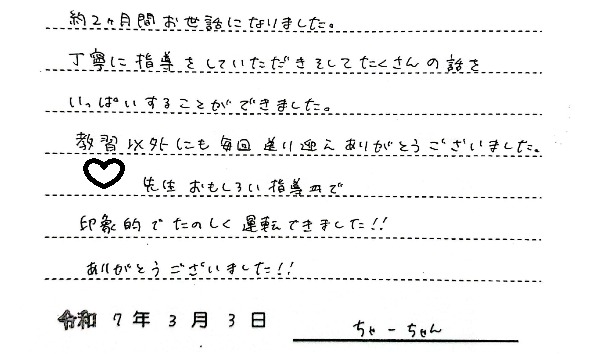 約2ヶ月間お世話になりました。
丁寧に指導をしていただきそしてたくさんの話を
いっぱいすることができました。
教習以外にも毎回送り迎えありがとうございました。
先生おもしろい指導で
印象的でたのしく運転できました!!
ありがとうございました!!
令和7年3月3日
ちゃーちゃん